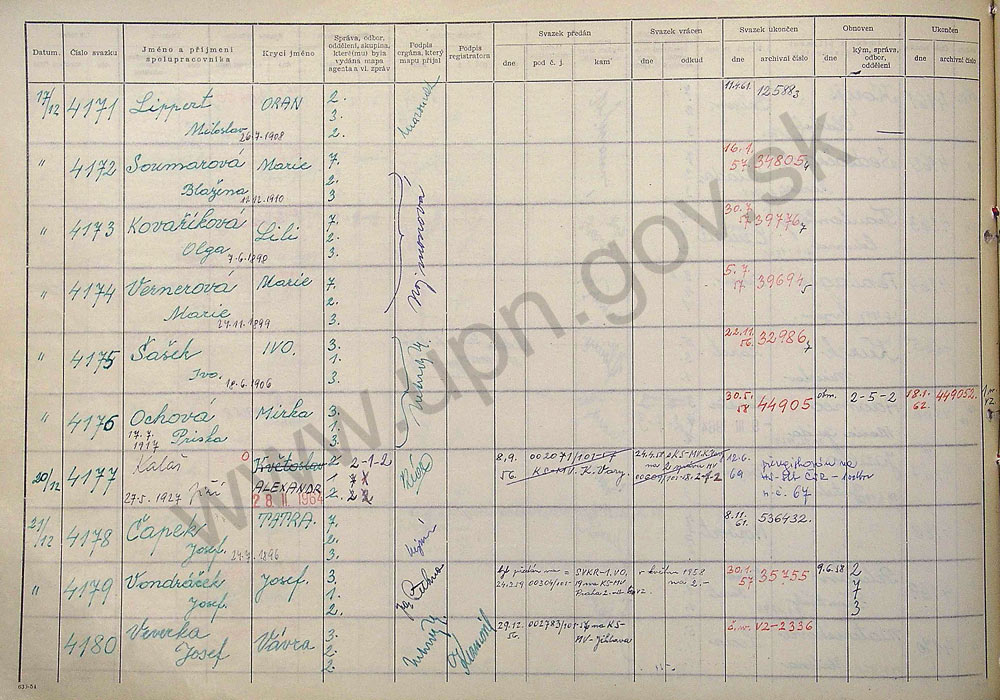 Datum. Číslo svazku Jméno a příjmení spolupracovníka Krycí jméno Správa, odbor, oddělení, skupina, které(mu) byla vydána mapa agenta a vl. zpráv Podpis orgána, který mapu přijal Podpis registratora Svazek předán Svazek vrácen Svazek ukončen Obnoven Ukončen
dne pod č. j. kam dne odkud dne archivní číslo dne kým, správa, odbor, oddělení dne archivní číslo
17/12 4171 Lippert ORAN 2. 11.4.61. 12588/3
3.
Miloslav 26.7.1908 2.
" 4172 Soumarová Marie 7. 16.1. 57. 34805/4
2.
Blažena 12.12.1910 3
" 4173 Kovaříková Lili 7. 30.7. 57 39776/7
2.
Olga 7.6.1890 3.
" 4174 Vernerová Marie 7. 5.7. 57 39694/5
2.
Marie 24.11.1899 3.
" 4175 Šašek IVO. 3. 22.11. 56. 32986/7
1.
Ivo. 18.6.1906 3.
" 4176 Ochová Mirka 3. 30.5. 58 44905 obn. 2-5-2 18.1. 62. 449052.
17.7. 1917 Priska 1.
3.
20/12 4177 Kalaš Květoslav 2 2-1-2 8.9. 56. 002071/101-57 KS-MV-K.Vary. 12.6. 69
27.5.1927 Jiří ALEXANDR 1 7
28 II 1964 2. 2 č. 67
21/12 4178 Čapek TATRA. 7. 8.11. 61. 536432.
2.
Josef. 24.7.1896 3.
" 4179 Vondráček Josef. 3. byl předán SVKR-1.VO. v květnu 1958 30.1. 57 35755 9.6.58 2
1. 24.2.59 00304/101 KS-MV na 2.- 7
Josef. 2. Praha 3
4180 Veverka Vávra 3. 29.12. 56. 002783/101-56 na KS-MV-Jihlava č.sv. V2-2336
2.
Josef 2.
63)-54
www.upn.gov.sk